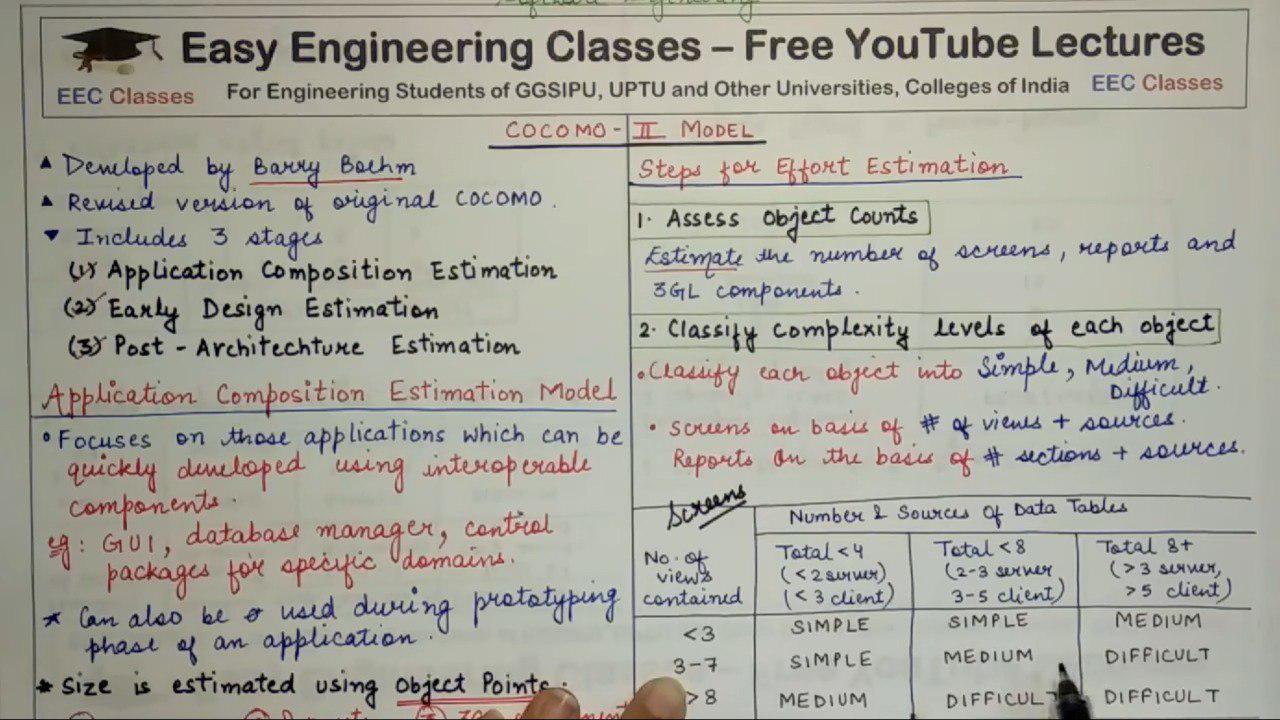 Easy Engineering Classes – Free YouTube Lectures
EEC Classes
For Engineering Students of GGSIPU, UPTU and Other Universities, Colleges of India
EEC Classes
COCOMO - II MODEL
Developed by Barry Boehm
Revised version of original COCOMO.
Includes 3 stages
(1) Application Composition Estimation
(2) Early Design Estimation
(3) Post - Architechture Estimation
Application Composition Estimation Model
Focuses on those applications which can be
quickly developed using interoperable
components.
eg: GUI, database manager, control
packages for specific domains.
* Can also be used during prototyping
phase of an application.
* Size is estimated using Object Points:
Steps for Effort Estimation
1. Assess Object Counts
Estimate the number of screens, reports and
3GL components.
2. Classify complexity levels of each object
• Classify each object into Simple, Medium,
Difficult.
• Screens on basis of # of views + sources.
Reports on the basis of # sections + sources.
Screens
Number & Sources Of Data Tables
No. of
views
contained
Total <4
(<2 server)
(<3 client)
Total <8
(2-3 server
3-5 client)
Total 8+
(>3 server,
>5 client)
<3 SIMPLE SIMPLE MEDIUM
3-7 SIMPLE MEDIUM DIFFICULT
>8 MEDIUM DIFFICULT DIFFICULT